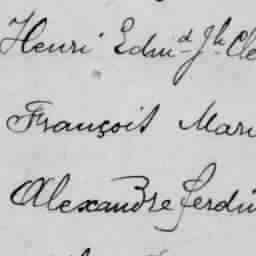 Henri Edmd Jh Cle
François Mari
Alexandre Ferdin